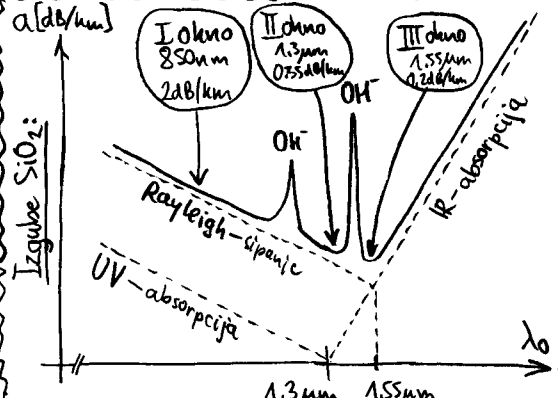 a[dB/km]
I okno
850nm
2dB/km
II okno
1.3μm
0.35dB/km
III okno
1.55μm
0.2dB/km
OH⁻
OH⁻
Izgube SiO₂:
Rayleigh-sipanje
UV-absorpcija
IR-absorpcija
λ₀
1.3μm
1.55μm